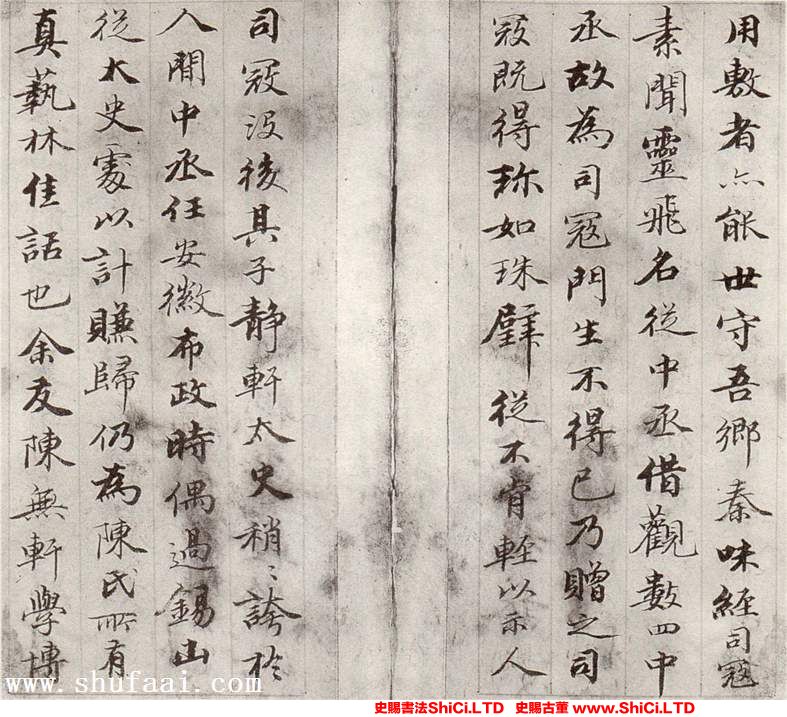 用敷者亦能世守吾鄉秦味經司寇
素聞靈飛名從中丞借觀數四中
丞故為司寇門生不得已乃贈之司
寇既得珎如珠璧從不肯輕以示人
司寇沒後其子靜軒太史稍〻誇於
人間中丞任安徽布政時偶過錫山
從太史處以計賺歸仍為陳氏所有
真藝林佳話也余友陳無軒學博
www.shufaai.com
史賜書法ShiCi.LTD 史賜古董 www.ShiCi.LTD